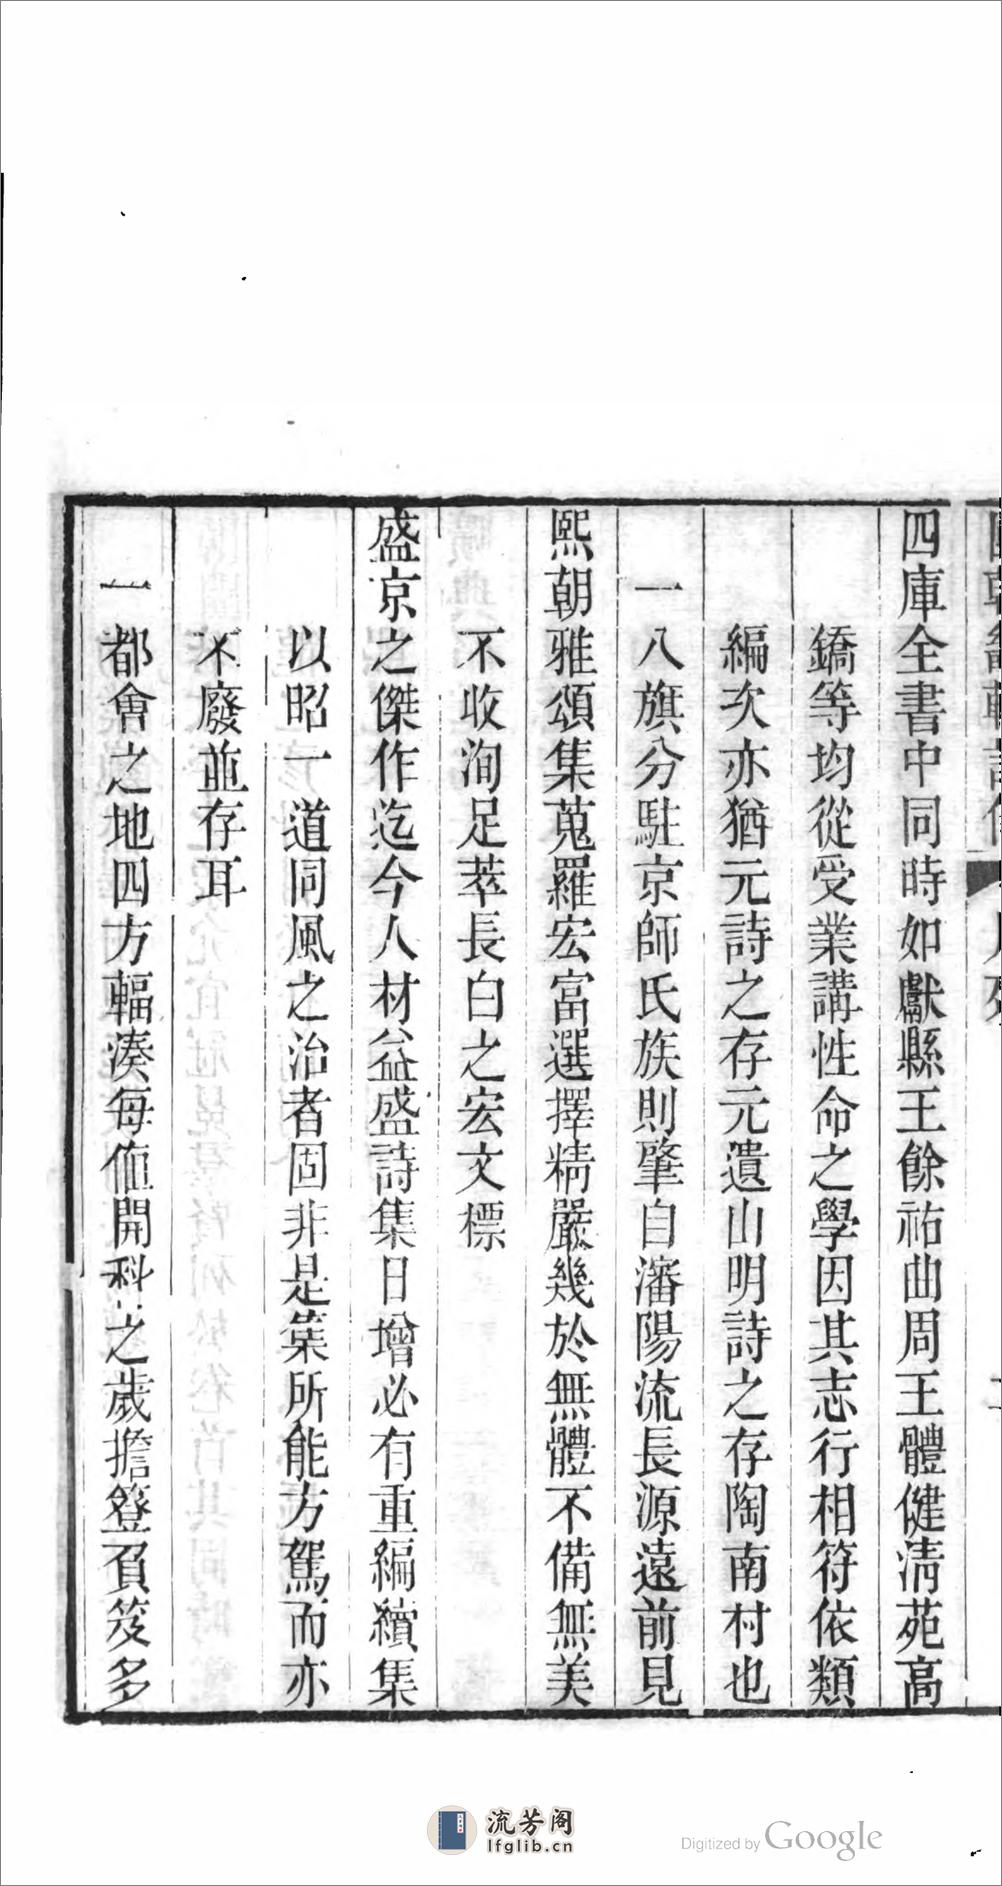 四庫全書中同時如獻縣王餘祐曲周王體健淸苑高
鐈等均從受業講性命之學因其志行相符依類
編次亦猶元詩之存元遺山明詩之存陶南村也
一八旗分駐京師氏族則肇自瀋陽流長源遠前見
熙朝雅頌集蒐羅宏富選擇精嚴幾於無體不備無美
不收洵足萃長白之宏文標
盛京之傑作迄今人材益盛詩集日增必有重編續集
以昭一道同風之治者固非是集所能方駕而亦
不廢並存耳
一都會之地四方輻湊每値開科之歲擔簦負笈多
流芳阁
lfglib.cn
Digitized by Google